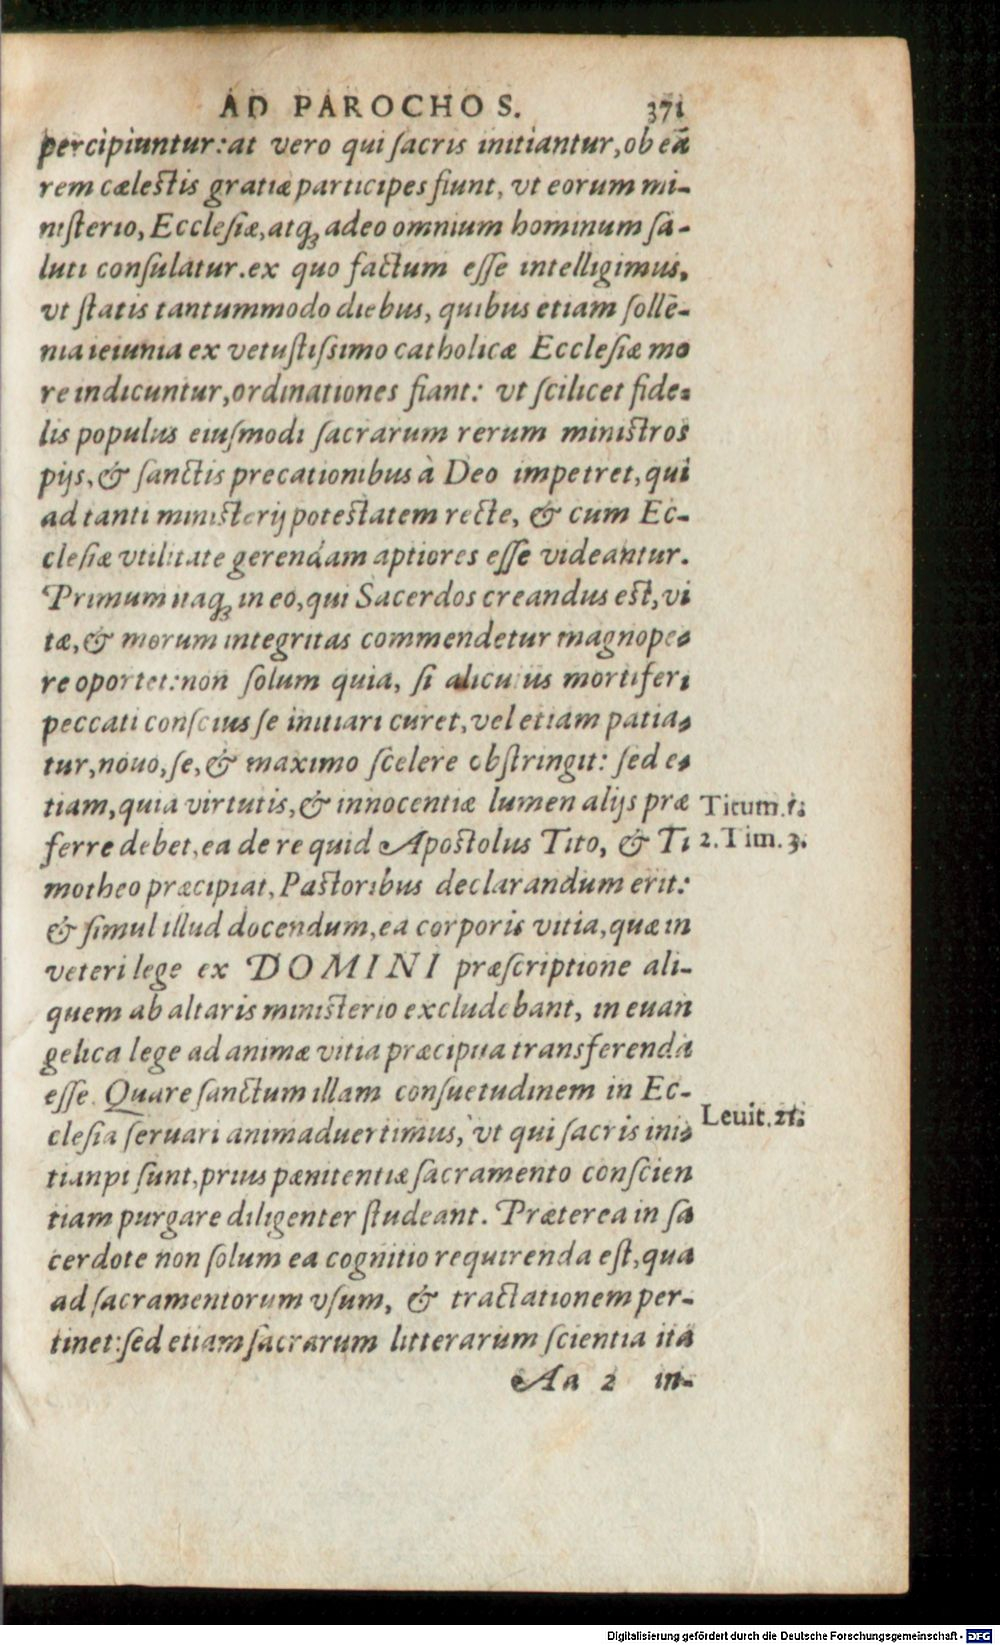 AD PAROCHOS. 371
percipiuntur: at vero qui ſacris initiantur, ob eā
rem cæleſtis gratiæ participes fiunt, vt eorum mi-
niſterio, Eccleſiæ, atq; adeo omnium hominum ſa-
luti conſulatur. ex quo factum eſſe intelligimus,
vt ſtatis tantummodo diebus, quibus etiam ſollē-
nia ieiunia ex vetuſtiſsimo catholicæ Eccleſiæ mo
re indicuntur, ordinationes fiant: vt ſcilicet fide-
lis populus eiuſmodi ſacrarum rerum miniſtros
pijs, & ſanctis precationibus à Deo impetret, qui
ad tanti miniſterij poteſtatem recte, & cum Ec-
cleſiæ vtilitate gerendam aptiores eſſe videantur.
Primum itaq; in eo, qui Sacerdos creandus eſt, vi
tæ, & morum integritas commendetur magnope-
re oportet: non ſolum quia, ſi alicuius mortiferi
peccati conſcius ſe initiari curet, vel etiam patia-
tur, nouo, ſe, & maximo ſcelere obſtringit: ſed e-
tiam, quia virtutis, & innocentiæ lumen alijs præ
Titum. 1.
ferre debet, ea de re quid Apoſtolus Tito, & Ti
2. Tim. 3.
motheo præcipiat, Paſtoribus declarandum erit:
& ſimul illud docendum, ea corporis vitia, quæ in
veteri lege ex DOMINI præſcriptione ali-
quem ab altaris miniſterio excludebant, in euan
gelica lege ad animæ vitia præcipua transferenda
eſſe. Quare ſanctum illam conſuetudinem in Ec-
cleſia ſeruari animaduertimus, vt qui ſacris ini-
Leuit. 21.
tianpi ſunt, prius pænitentiæ ſacramento conſcien
tiam purgare diligenter ſtudeant. Præterea in ſa
cerdote non ſolum ea cognitio requirenda eſt, qua
ad ſacramentorum vſum, & tractationem per-
tinet: ſed etiam ſacrarum litterarum ſcientia ita
Aa 2 in-
Digitalisierung gefördert durch die Deutsche Forschungsgemeinschaft - DFG